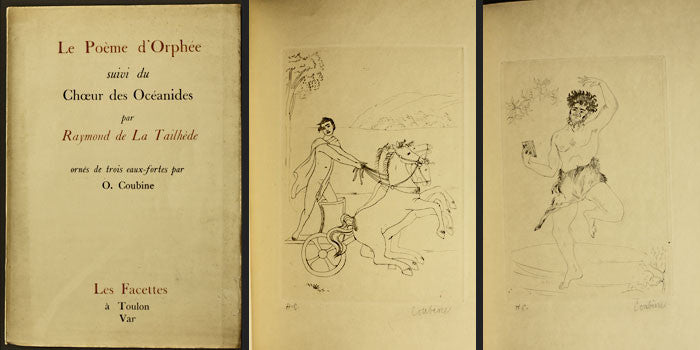 Le Poème d'Orphée
suivi du
Chœur des Océanides
par
Raymond de La Tailhède
ornés de trois eaux-fortes par
O. Coubine
Les Facettes
à Toulon
Var
H.C.
Coubine
H.C.
Coubine